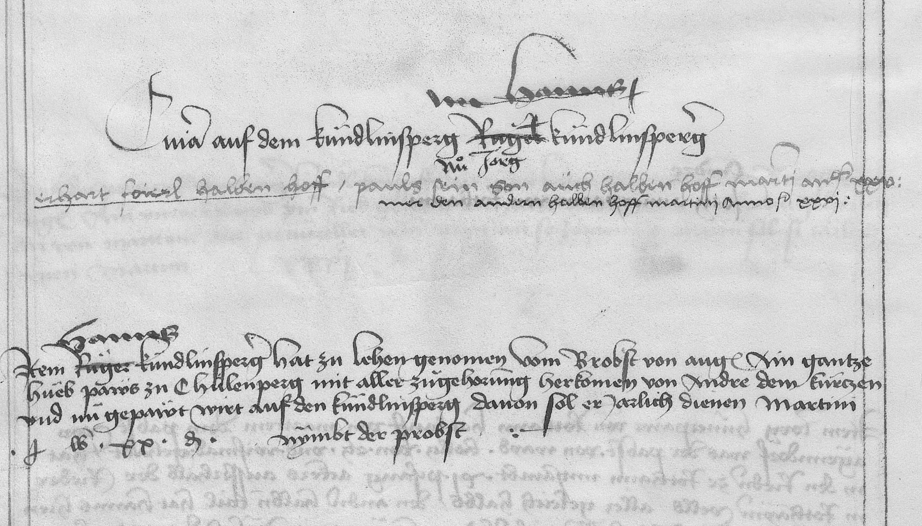 nu Hanns
Curia auf dem kündlinsperg Rüger kündlinsperger
Nu Jörg
erhart loierl halben hoff / pauls sein son auch halben hoff marti an° xxxv:
mer den andern halben hoff martini Anno xxxvi:
Hanns
Item Rüger kündlinsperger hat zu lehen genomen vom Brobst von aug Ain gantze
hueb paws zu Chullenperg mit aller zugehorung herkomen von Andre dem kurtzen
und nu gepawt wirt auf den kündlinsperg davon sol er Jarlich dienen Martini
lx d nymbt der probst